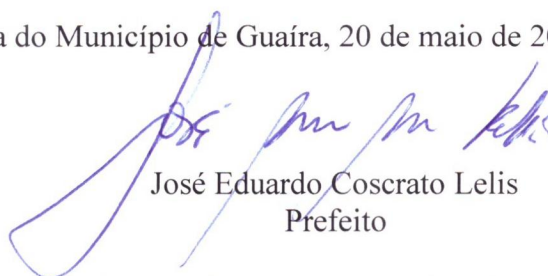 a do Município de Guaíra, 20 de maio de 20
José Lelis
José Eduardo Coscrato Lelis
Prefeito